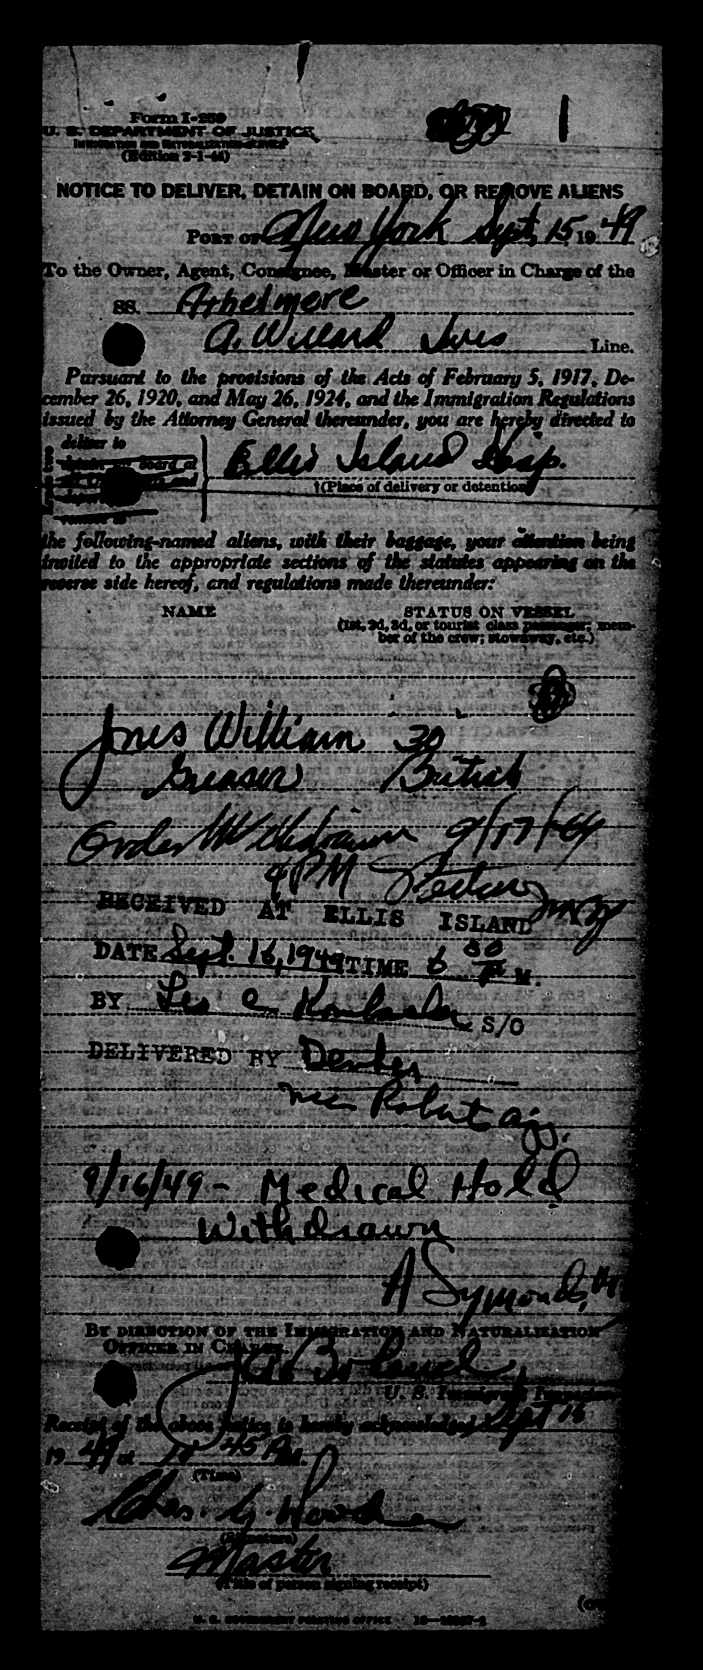 Form I-259
U. S. DEPARTMENT OF JUSTICE
IMMIGRATION AND NATURALIZATION SERVICE
(Edition 2-1-44)
NOTICE TO DELIVER, DETAIN ON BOARD, OR REMOVE ALIENS
PORT OF New York Sept. 15, 1949
To the Owner, Agent, Consignee, Master or Officer in Charge of the
SS. Athelmere
A. Willard Ives Line.
Pursuant to the provisions of the Acts of February 5, 1917, De-
cember 26, 1920, and May 26, 1924, and the Immigration Regulations
issued by the Attorney General thereunder, you are hereby directed to
deliver to
Ellis Island Hosp.
†(Place of delivery or detention)
the following-named aliens, with their baggage, your attention being
invited to the appropriate sections of the statutes appearing on the
reverse side hereof, and regulations made thereunder:
NAME STATUS ON VESSEL
(1st, 2d, 3d, or tourist class passenger; mem-
ber of the crew; stowaway, etc.)
Jones William 30
Greaser British
Order Withdrawn 9/17/49
4 PM
RECEIVED AT ELLIS ISLAND
DATE Sept. 16, 1949 TIME 6 30 P M.
BY Leo C S/O
DELIVERED BY
Robert
9/16/49 - Medical Hold
Withdrawn
A Symonds,
BY DIRECTION OF THE IMMIGRATION AND NATURALIZATION
OFFICER IN CHARGE.
U. S. Immigrant Inspector
Receipt of the above notice is hereby acknowledged Sept 16
19 49 at 45 PM.
(Time)
Chas. G.
(Signature)
Master
(Title of person signing receipt)
U. S. GOVERNMENT PRINTING OFFICE